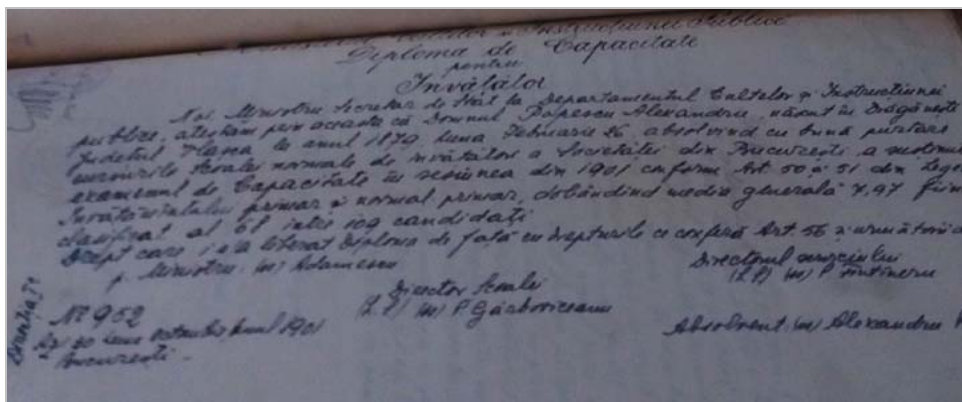 Cultelor și Instrucțiunei Publice
Diploma de Capacitate
pentru
Învățător
Noi Ministru Secretar de Stat la Departamentul Cultelor și Instrucțiunei
publice, atestăm prin aceasta că Domnul Popescu Alexandru, născut în Drăgănești
Județul Vlașca la anul 1879 luna Februarie 26, absolvind cu bună purtare
cursurile Școalei normale de învățători a Societăței din București, a
examenul de Capacitate în sesiunea din 1901 conform Art. 50 și 51 din Legea
Învățământului primar și normal primar, dobândind media generală 7,97 fiind
clasificat al 61 între 109 candidați
Drept care i s'a liberat Diploma de față cu drepturile ce conferă Art. 56 și
p. Ministru (ss) Adamescu
Directorul serviciului
Director Școalei
(L.S) (ss) P.
(L.S) (ss) P. Gârboviceanu
№ 952
30 luna octombrie anul 1901
Absolvent (ss) Alexandru
București.